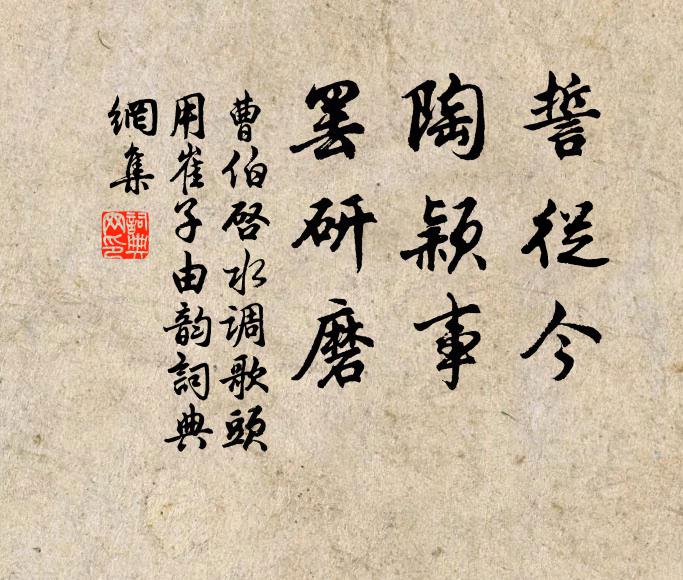 誓從今
陶潁事
罢研磨
曹伯啓水调歌頭
用崔子由韵詞典
網集
詞典
网印